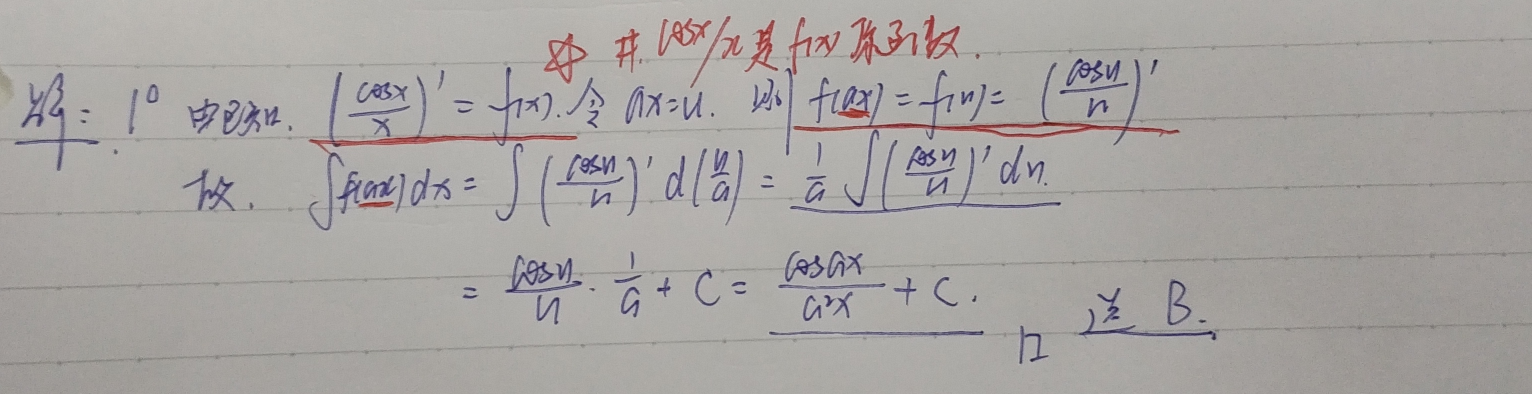 ☆ 若 cosx/x 是 f(x) 原函数.
解: 1° 由已知. (cosx/x)' = f(x). 令 ax=u. 则 f(ax) = f(u) = (cosu/u)'
故. ∫f(ax)dx = ∫(cosu/u)' d(u/a) = 1/a ∫(cosu/u)' du.
= cosu/u · 1/a + C = cosax/a²x + C. 选 B.